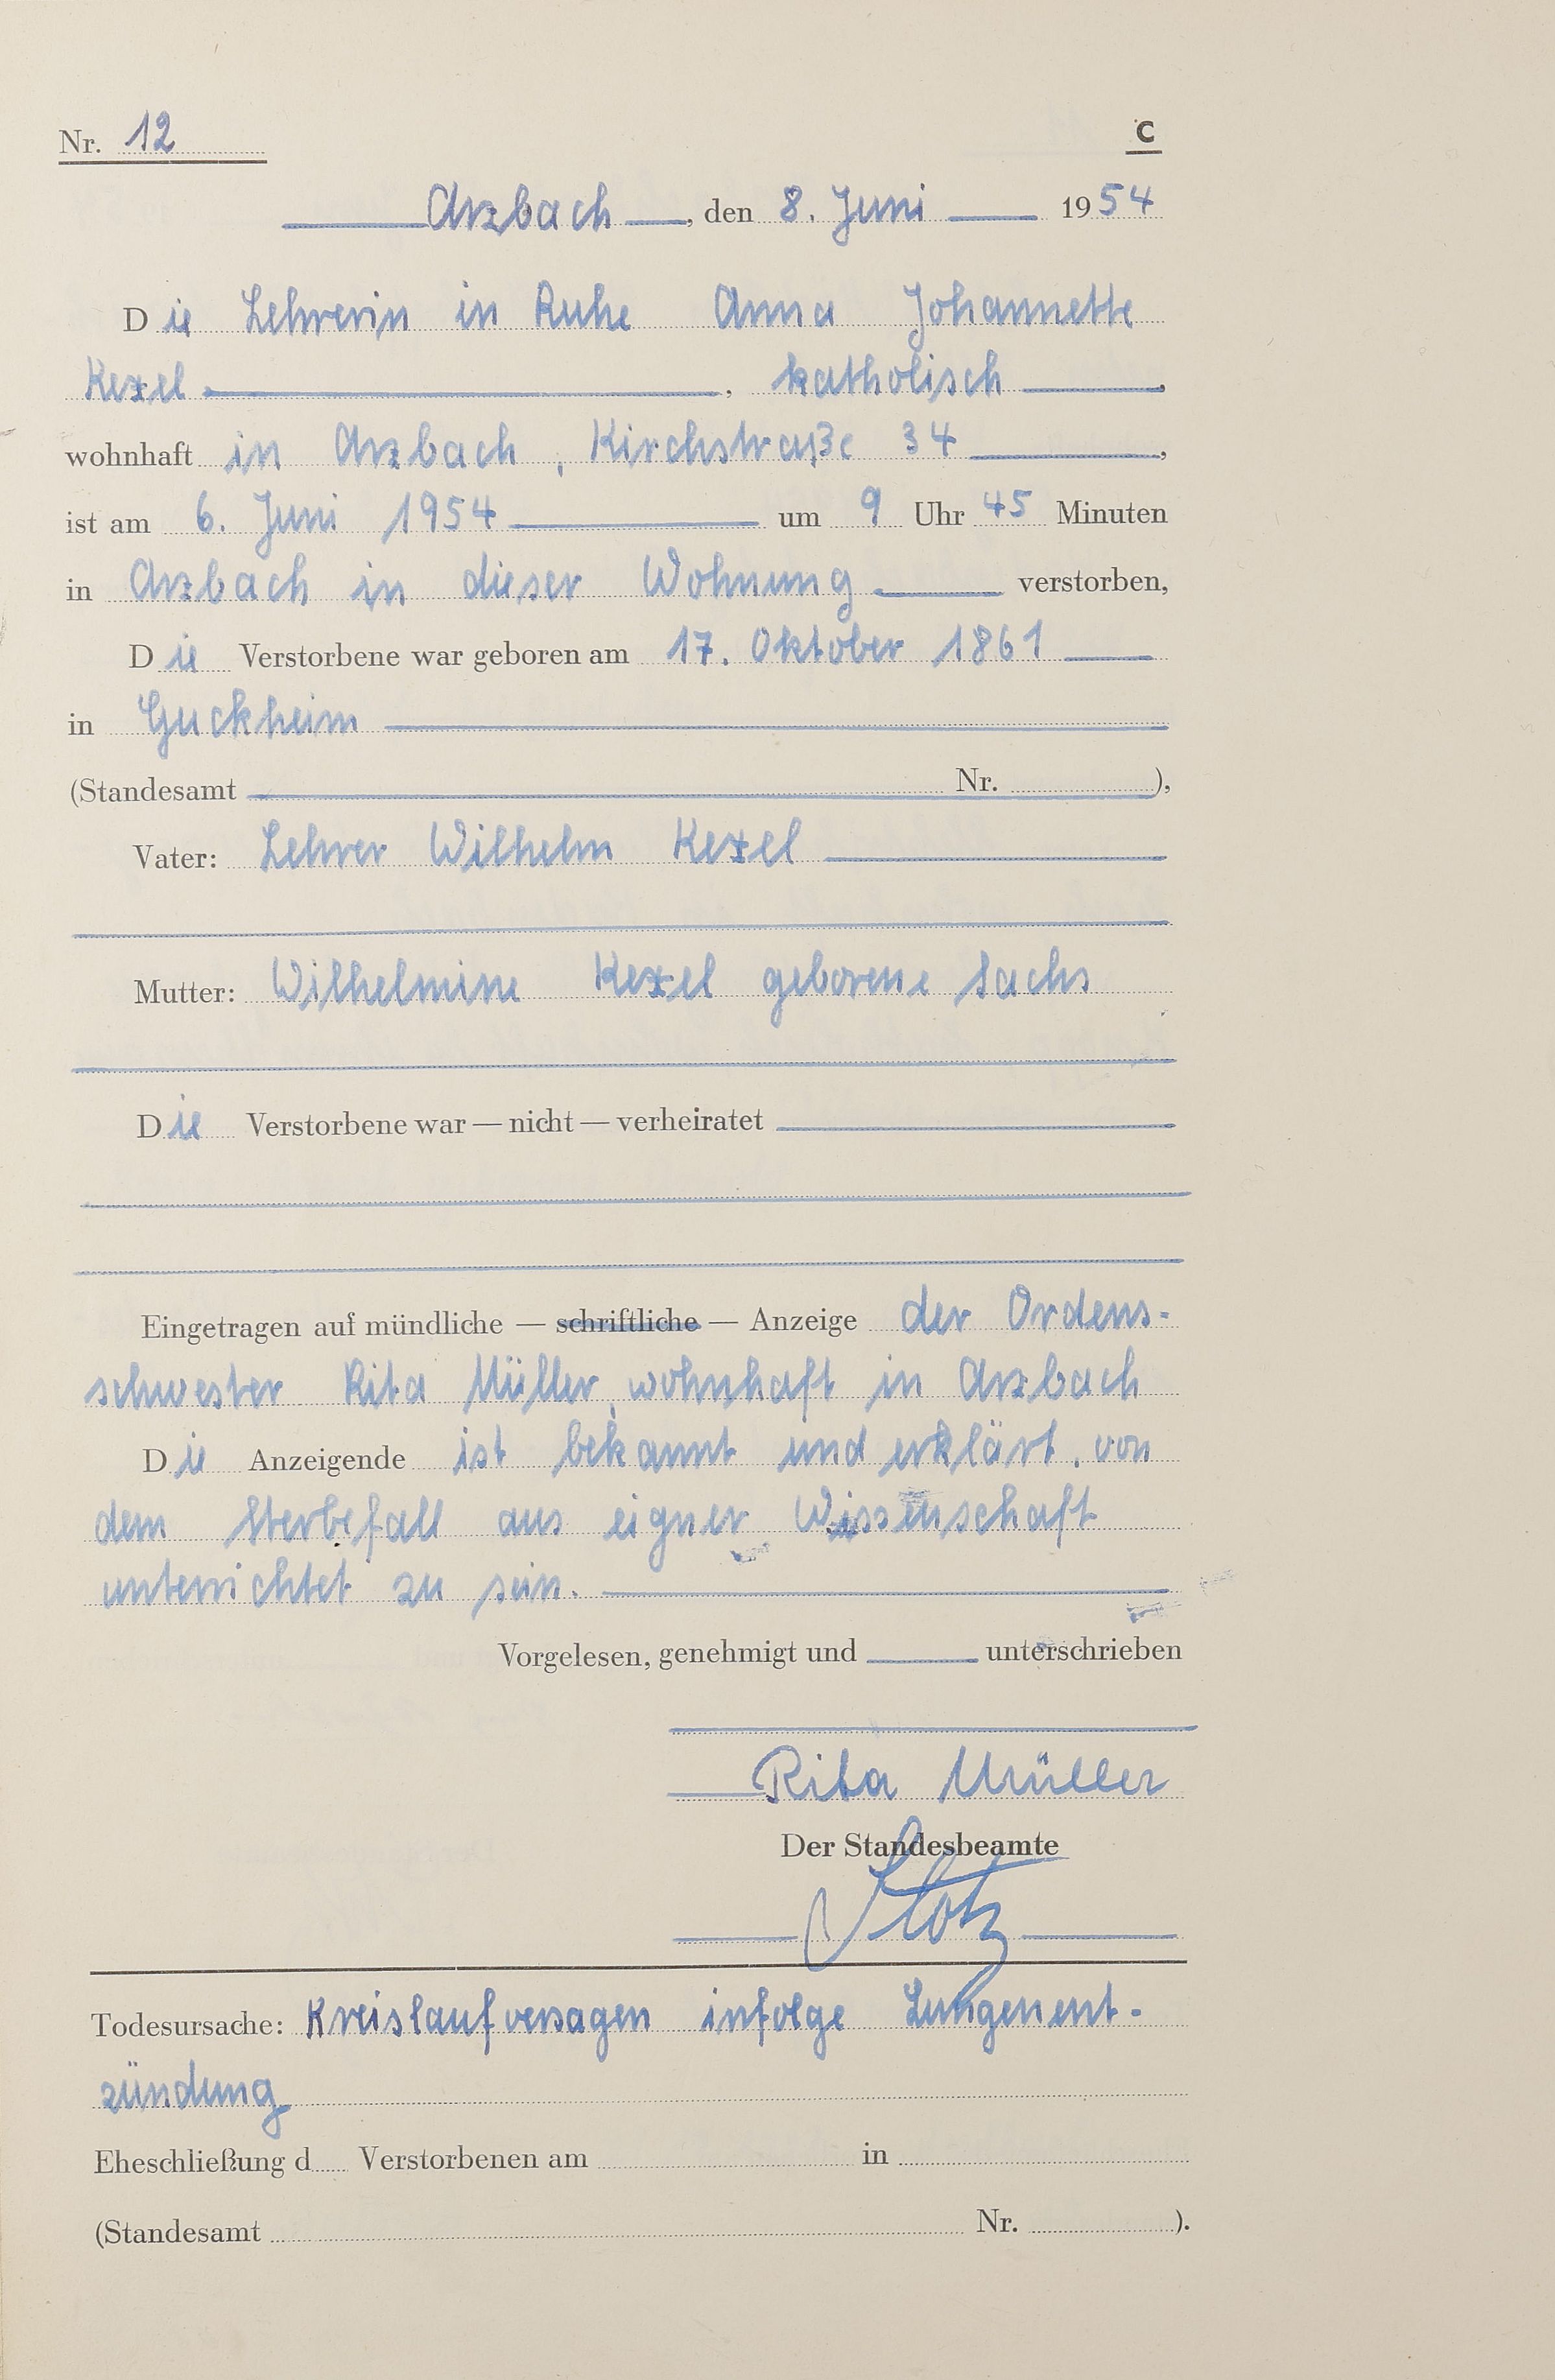 Nr. 12
C
Arzbach, den 8. Juni 1954
Die Lehrerin in Ruhe Anna Johannette
Kexel, katholisch,
wohnhaft in Arzbach, Kirchstraße 34,
ist am 6. Juni 1954 um 9 Uhr 45 Minuten
in Arzbach in dieser Wohnung verstorben,
Die Verstorbene war geboren am 17. Oktober 1861
in Guckheim
(Standesamt Nr. ),
Vater: Lehrer Wilhelm Kexel
Mutter: Wilhelmine Kexel geborene Sachs
Die Verstorbene war — nicht — verheiratet
Eingetragen auf mündliche — schriftliche — Anzeige der Ordens-
schwester Rita Müller, wohnhaft in Arzbach
Die Anzeigende ist bekannt und erklärt, von
dem Sterbefall aus eigner Wissenschaft
unterrichtet zu sein.
Vorgelesen, genehmigt und unterschrieben
Rita Müller
Der Standesbeamte
Stotz
Todesursache: Kreislaufversagen infolge Lungenent-
zündung
Eheschließung d Verstorbenen am in
(Standesamt Nr. ).